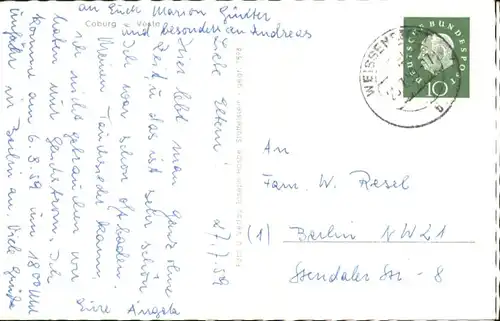 an Euch Marion Günter
und besonders an Andreas
Coburg - Veste
27.7.59
Liebe Eltern!
Hier lebt man ganz ohne
Zeit u. das ist sehr schön.
Ich war schon oft baden.
Meinen Tauchsieder kann
ich nicht gebrauchen wir
haben nur Gleichstrom. Ich
komme am 6.8.59 um 18 00 Uhr
in Berlin an. Viele Grüße
Eure Angela
WEISSEN
a
DEUTSCHE BUNDESPOST
10
An
Fam. W. Resel
(1) Berlin NW 21
Stendaler Str. 8